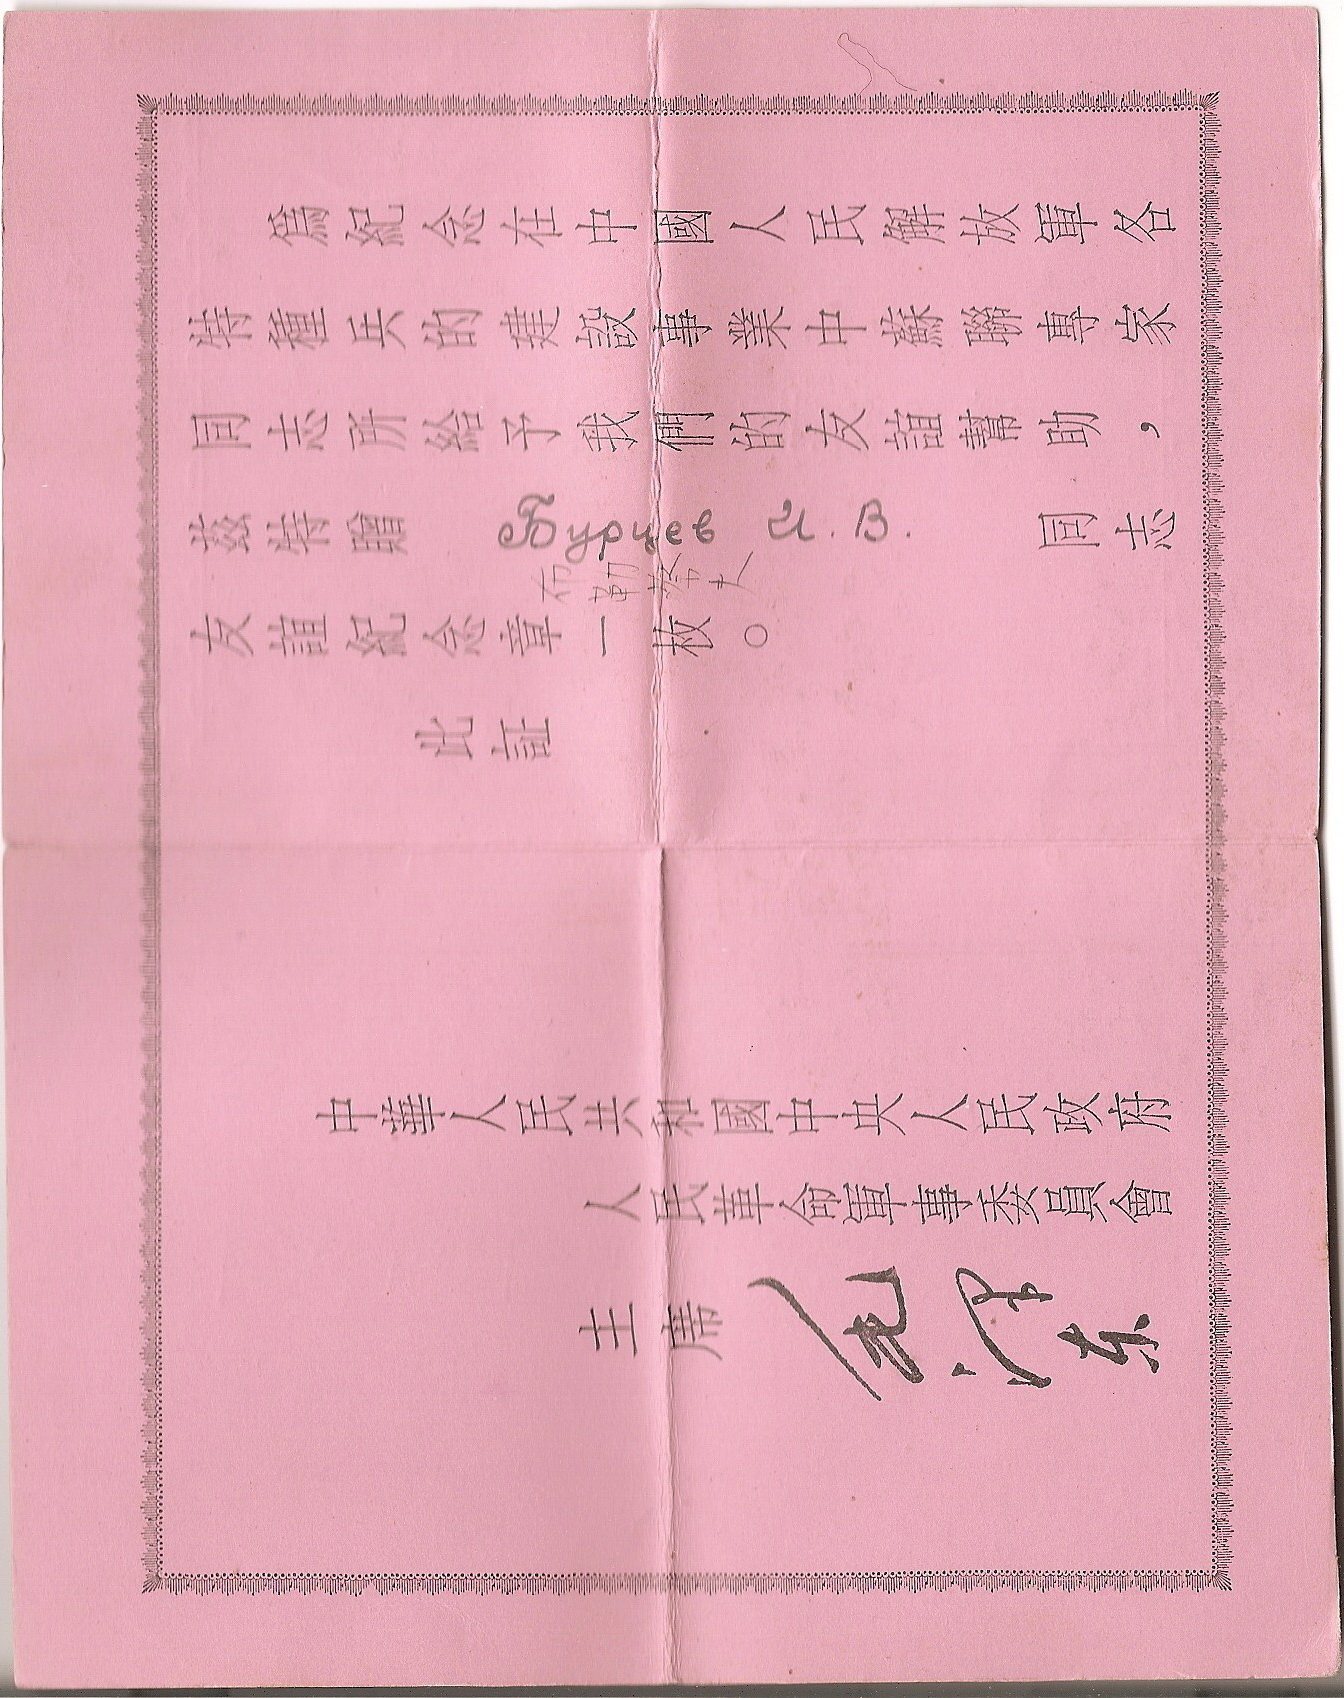 爲紀念在中國人民解放軍各
特種兵的建設事業中蘇聯專家
同志所給予我們的友誼幫助，
茲特贈 Бурцев И. В. 同志
布勒蔡夫
友誼紀念章一枚。
此証
中華人民共和國中央人民政府
人民革命軍事委員會
主席 毛澤东